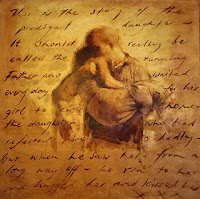 This is the story of the
prodigal daughter -
It should really be
called the running
Father who waited
for his
girl to come home
the daughter who had
so badly -
but when he saw her from
long way off - he ran to her
and hugged her and kissed her